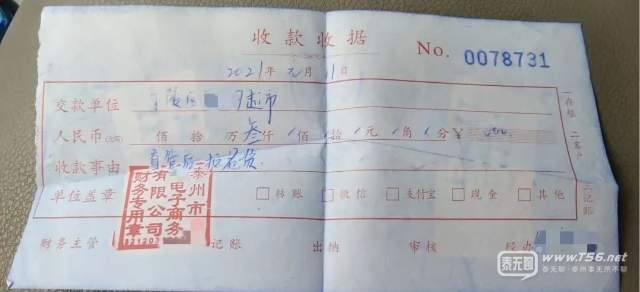 收款收据
No. 0078731
2021年元月11日
交款单位 超市
人民币(大写) 佰 拾 万 叁仟 佰 拾 元 角 分 ¥
收款事由
单位盖章 □转账 □微信 □支付宝 □现金 □其他
泰州市
电子商务
有限公司
财务专用章
321202
一存根 二客户 三记账
财务主管 记账 出纳 审核 经办
泰无聊
www.T56.net
泰无聊·泰州事无所不聊